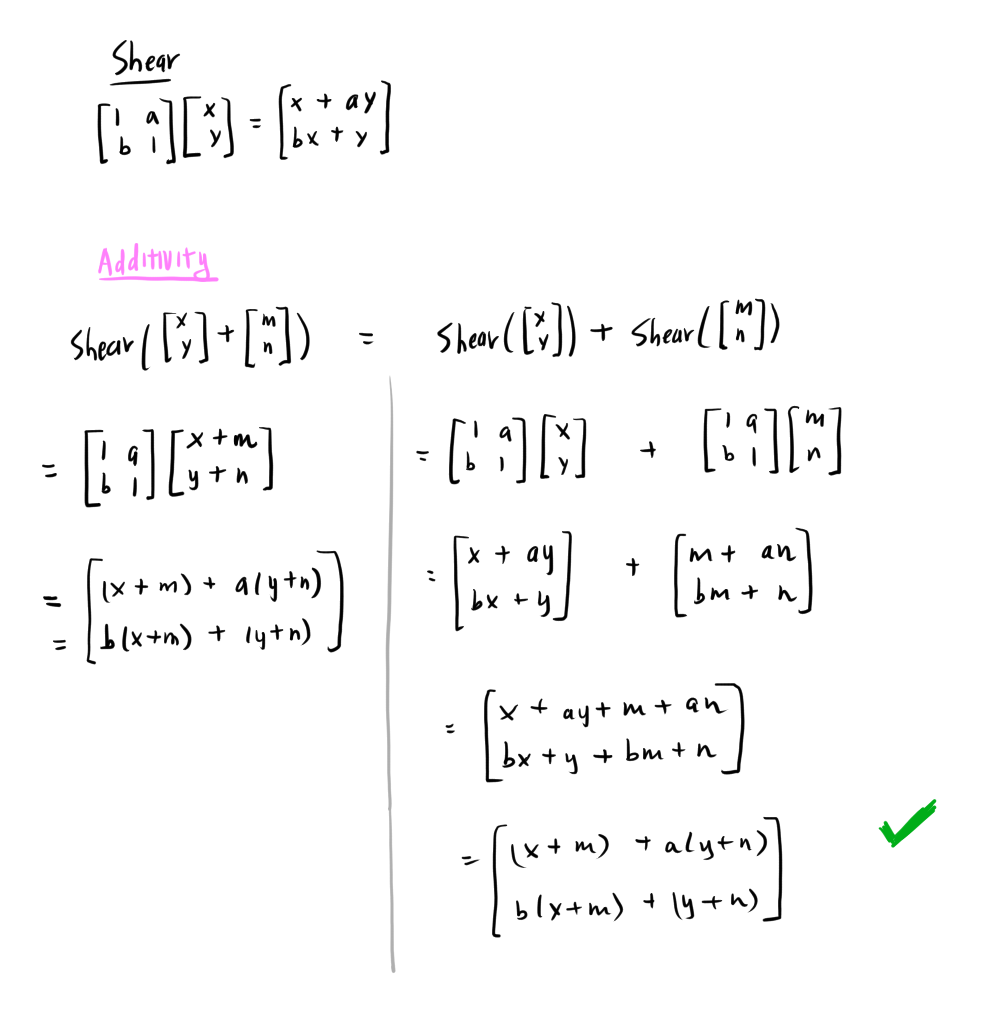 Shear
[1 a; b 1][x; y] = [x + ay; bx + y]
Additivity
Shear([x; y] + [m; n]) = Shear([x; y]) + Shear([m; n])
= [1 a; b 1][x + m; y + n]
= [(x + m) + a(y+n);
= b(x+m) + (y+n)]
= [1 a; b 1][x; y] + [1 a; b 1][m; n]
= [x + ay; bx + y] + [m + an; bm + n]
= [x + ay + m + an; bx + y + bm + n]
= [(x + m) + a(y+n); b(x+m) + (y+n)]